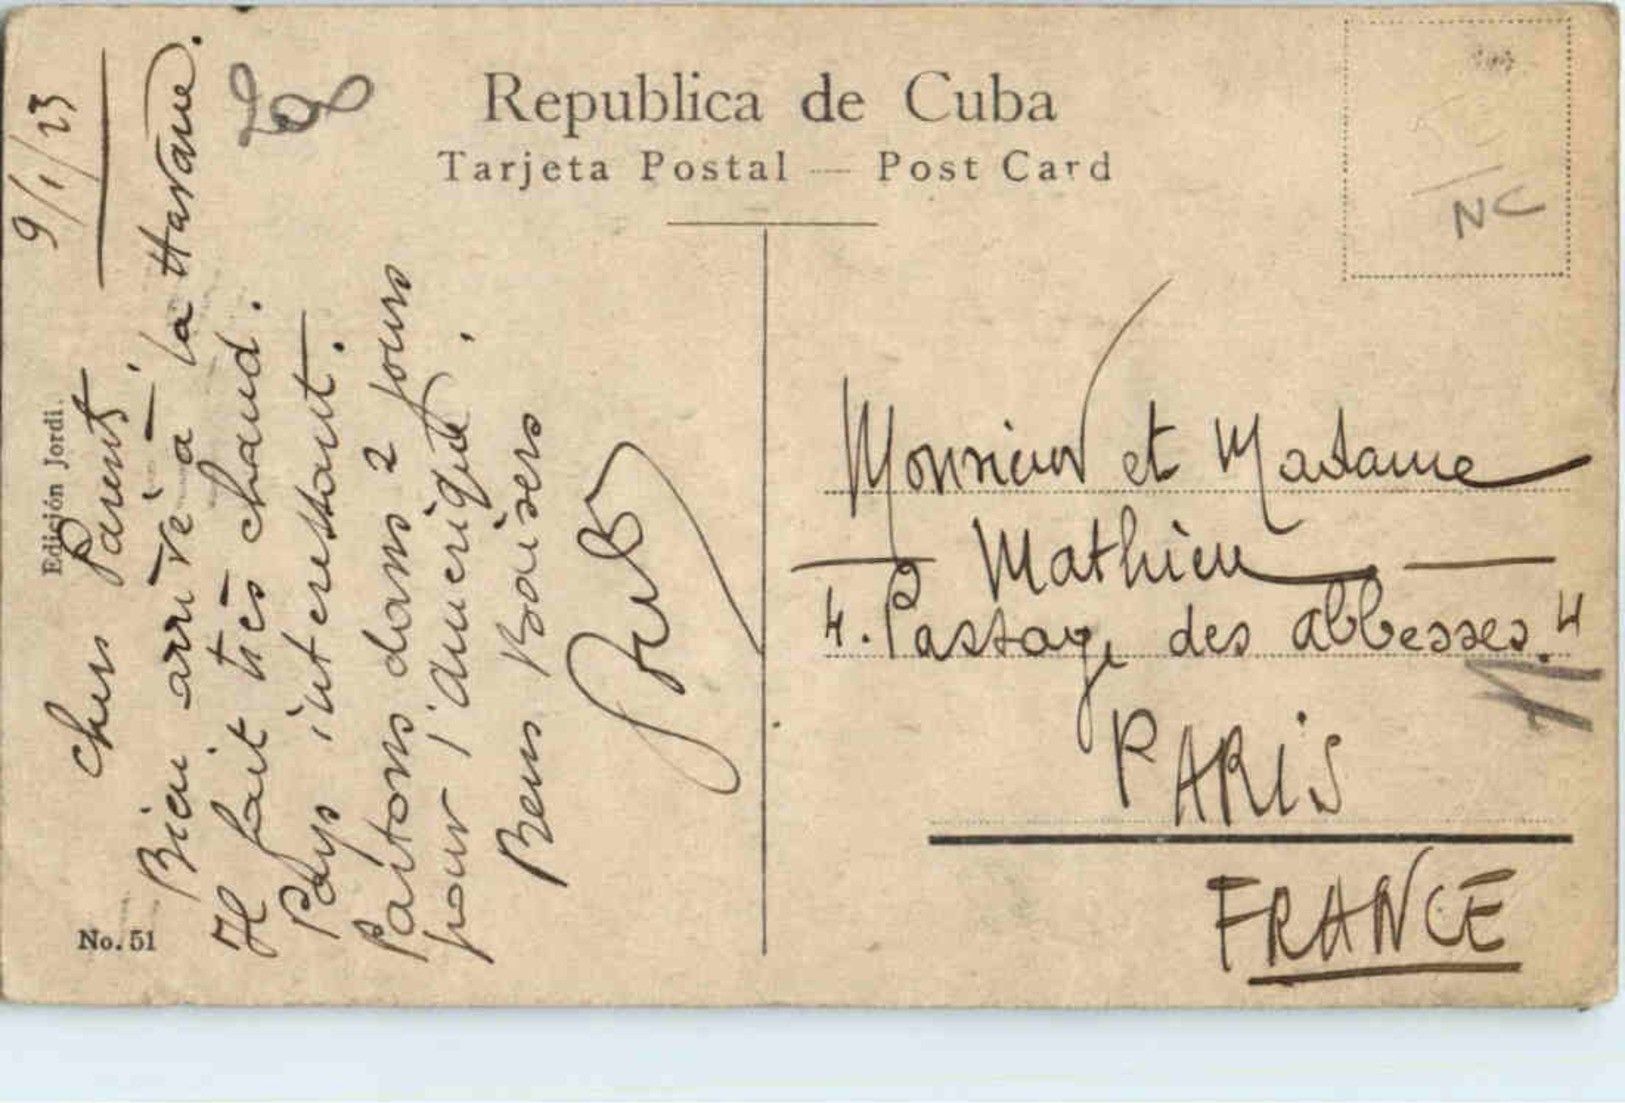 Republica de Cuba
Tarjeta Postal — Post Card
NC
9/1/23
Chers Parents,
Bien arrivé à la Havane.
Il fait très chaud.
Pays interessant.
Partons dans 2 jours
pour l'amerique.
Bons Baisers
Edición Jordi.
No. 51
Monsieur et Madame
Mathieu
4. Passage des abbesses. 4
PARIS
FRANCE